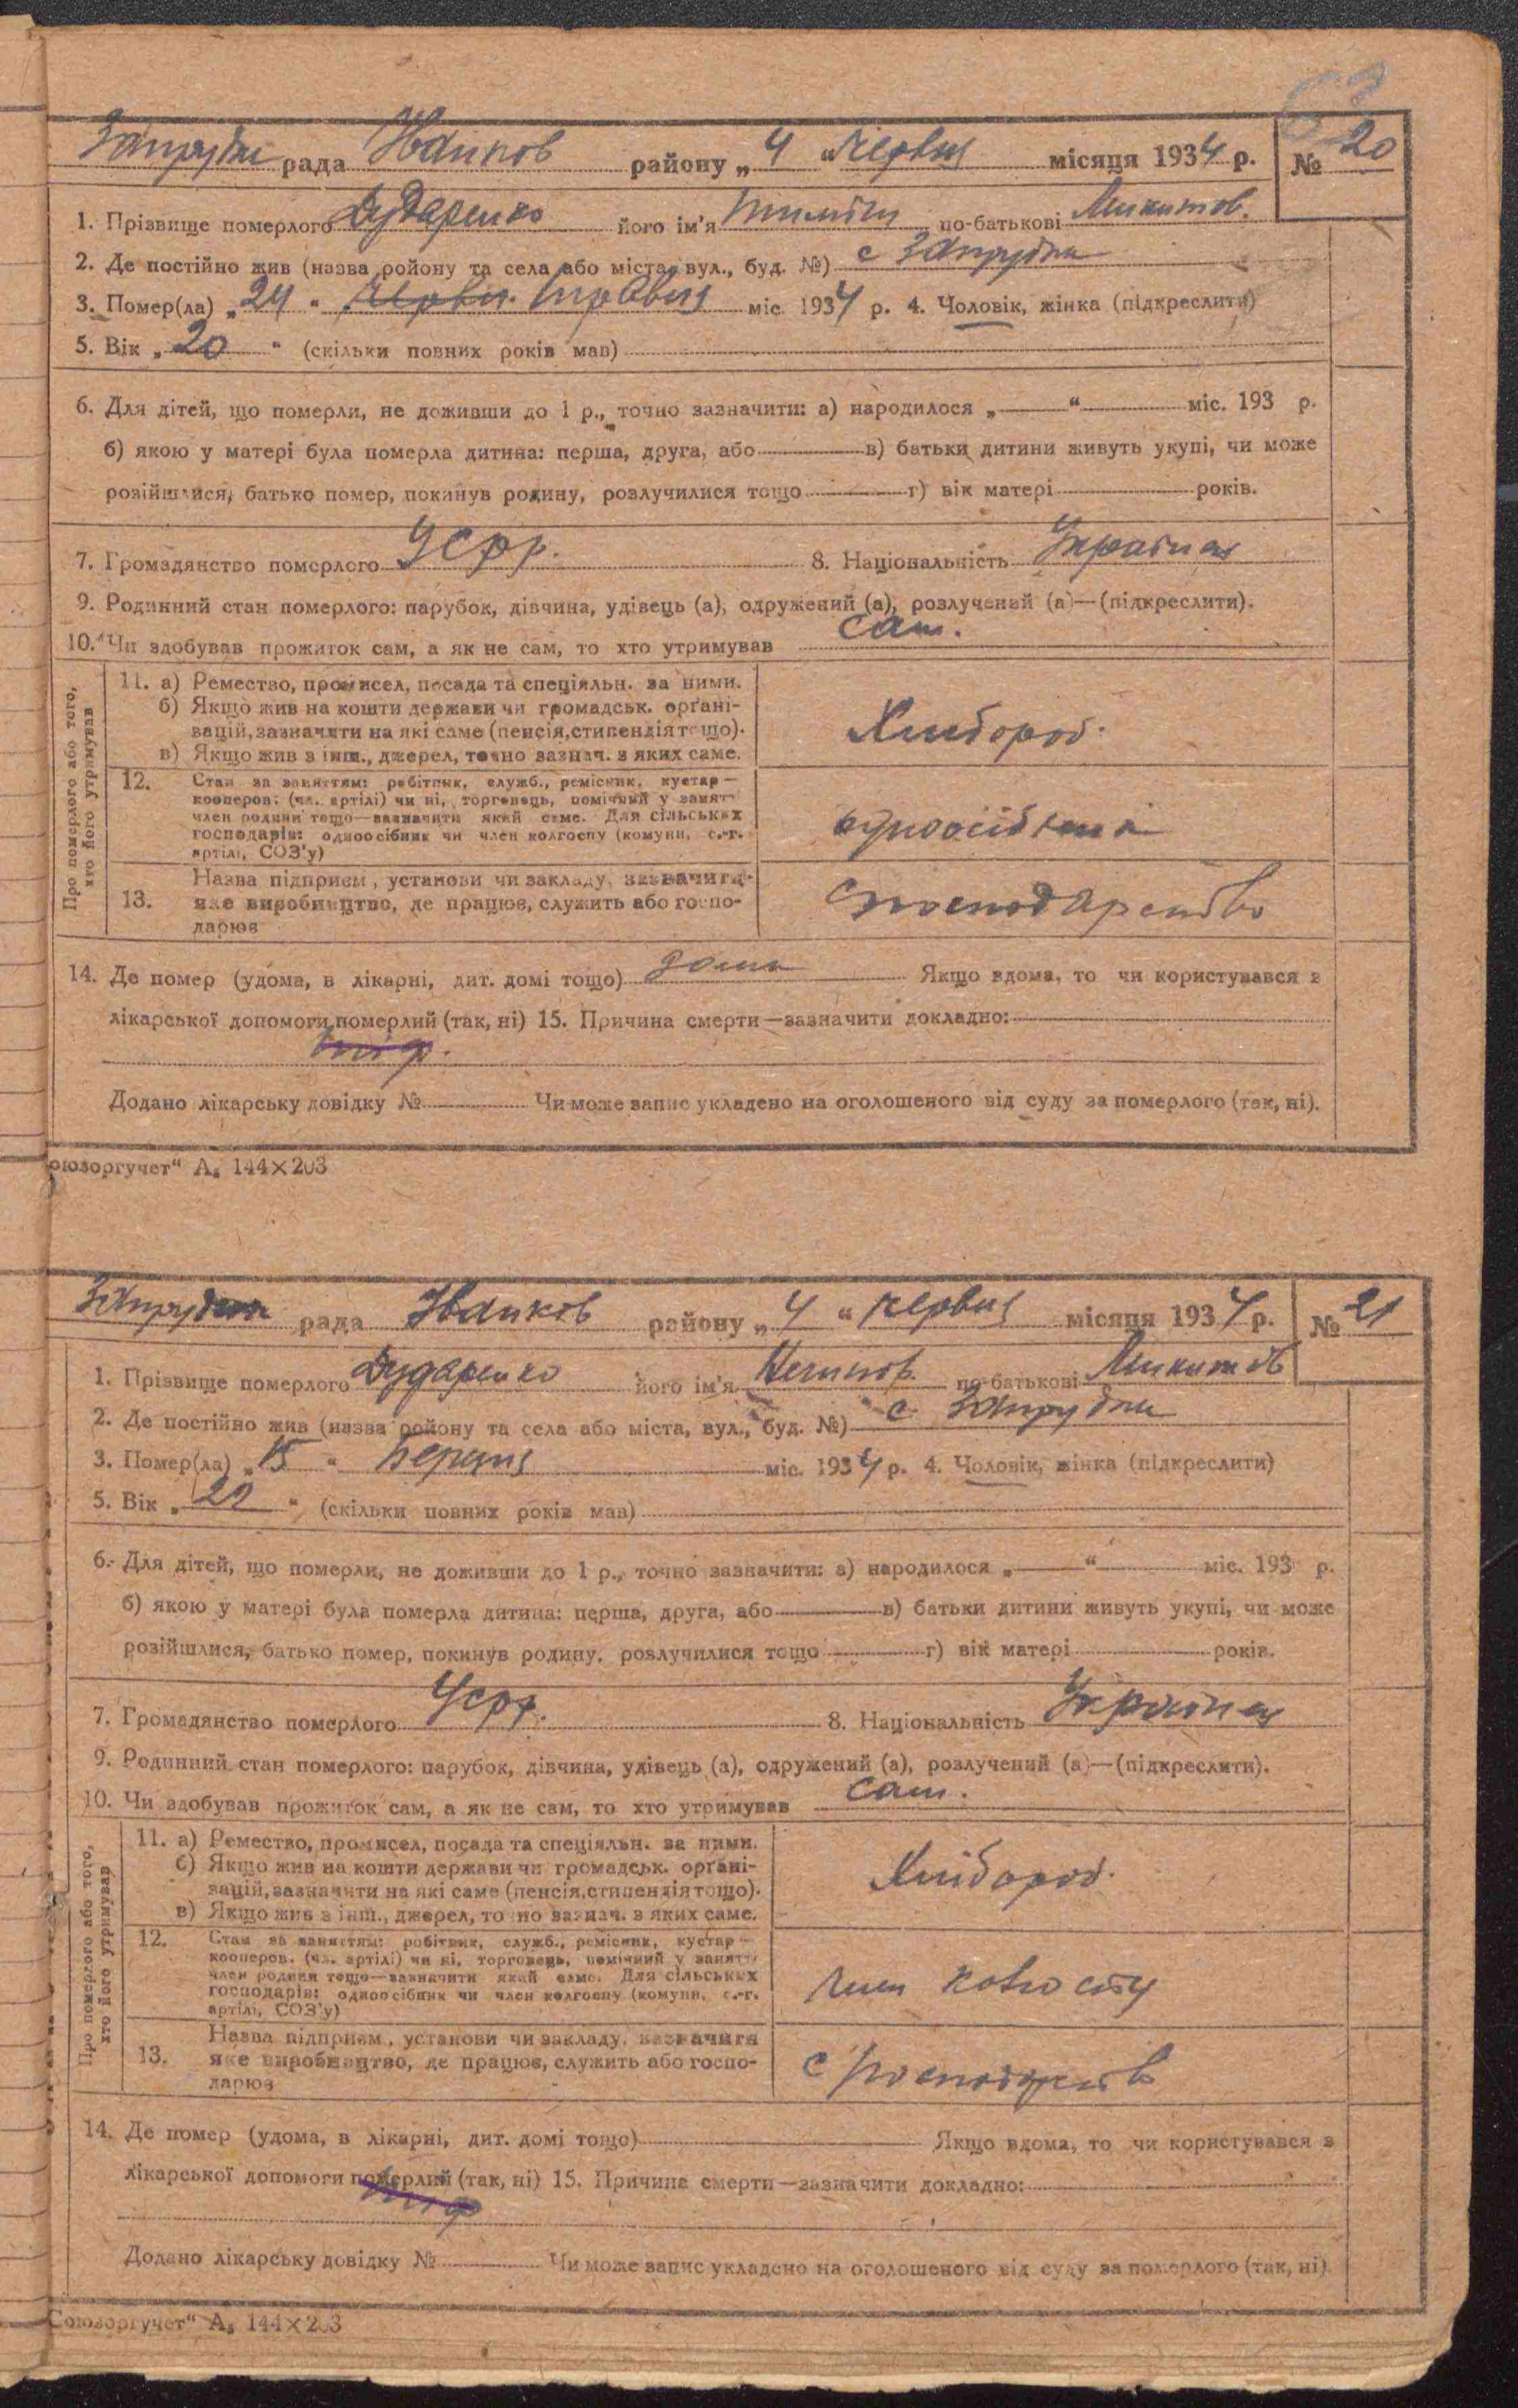 63
Запрудки рада Іванков району „4 “ червня місяця 1934 р. № 20
1. Прізвище померлого Дударенко його ім'я по-батькові Микитов.
2. Де постійно жив (назва ройону та села або міста, вул., буд. №) с Запрудки
3. Помер(ла) „24 “ червн. травня міс 1934 р. 4. Чоловік, жінка (підкреслити)
5. Вік „20 “ (скільки повних років мав)
6. Для дітей, що померли, не доживши до 1 р., точно зазначити: а) народилося „ “ міс. 193 р.
б) якою у матері була померла дитина: перша, друга, або в) батьки дитини живуть укупі, чи може
розійшлися, батько помер, покинув родину, розлучилися тощо г) вік матері років.
7. Громадянство померлого УСРР. 8. Національність Україн
9. Родинний стан померлого: парубок, дівчина, удівець (а), одружений (а), розлучений (а)—(підкреслити).
10. Чи здобував прожиток сам, а як не сам, то хто утримував сам.
Про померлого або того,
хто його утримував
11. а) Ремество, промисел, посада та спеціяльн. за ними.
б) Якщо жив на кошти держави чи громадськ. орґані-
зацій, зазначити на які саме (пенсія, стипендія тощо).
в) Якщо жив з інш., джерел, точно зазнач. з яких саме.
Хлібороб.
12. Стан за заняттям: робітник, служб., ремісник, кустар—
кооперов. (чл. артілі) чи ні, торговець, помічний у занятті
член родини тощо—зазначити який саме. Для сільських
господарів: одноосібник чи член колгоспу (комуни, с.-г.
артілі, СОЗ'у)
одноосібник
13. Назва підприєм, установи чи закладу, зазначити
яке виробництво, де працює, служить або госпо-
дарює
с господарство
14. Де помер (удома, в лікарні, дит. домі тощо) дома Якщо вдома, то чи користувався з
лікарської допомоги померлий (так, ні) 15. Причина смерти—зазначити докладно:
тиф.
Додано лікарську довідку № Чи може запис укладено на оголошеного від суду за померлого (так, ні).
юзоргучет“ А₅ 144×203
Запрудки рада Іванков району „4 “ червня місяця 1934 р. № 21
1. Прізвище померлого Дударенко його ім'я Нечипор. по-батькові Микитов
2. Де постійно жив (назва ройону та села або міста, вул., буд. №) с. Запрудки
3. Помер(ла) „15 “ березня міс. 1934 р. 4. Чоловік, жінка (підкреслити)
5. Вік „22 “ (скільки повних років мав)
6. Для дітей, що померли, не доживши до 1 р., точно зазначити: а) народилося „ “ міс. 193 р.
б) якою у матері була померла дитина: перша, друга, або в) батьки дитини живуть укупі, чи може
розійшлися, батько помер, покинув родину, розлучилися тощо г) вік матері років.
7. Громадянство померлого УСРР. 8. Національність Україн
9. Родинний стан померлого: парубок, дівчина, удівець (а), одружений (а), розлучений (а)—(підкреслити).
10. Чи здобував прожиток сам, а як не сам, то хто утримував сам.
Про померлого або того,
хто його утримував
11. а) Ремество, промисел, посада та спеціяльн. за ними.
б) Якщо жив на кошти держави чи громадськ. орґані-
зацій, зазначити на які саме (пенсія, стипендія тощо).
в) Якщо жив з інш., джерел, точно зазнач. з яких саме.
Хлібороб.
12. Стан за заняттям: робітник, служб., ремісник, кустар—
кооперов. (чл. артілі) чи ні, торговець, помічний у занятті
член родини тощо—зазначити який саме. Для сільських
господарів: одноосібник чи член колгоспу (комуни, с.-г.
артілі, СОЗ'у)
член колгоспу
13. Назва підприєм, установи чи закладу, зазначити
яке виробництво, де працює, служить або госпо-
дарює
с господарств
14. Де помер (удома, в лікарні, дит. домі тощо) Якщо вдома, то чи користувався з
лікарської допомоги померлий (так, ні) 15. Причина смерти—зазначити докладно:
тиф
Додано лікарську довідку № Чи може запис укладено на оголошеного від суду за померлого (так, ні).
Союзоргучет“ А₅ 144×203